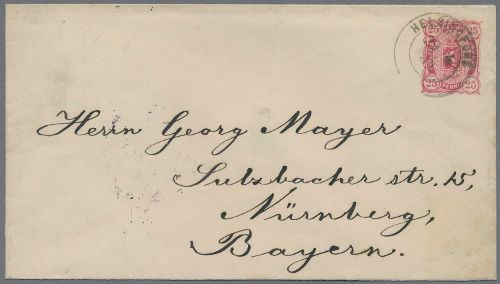 HELSINGFORS
25 25
25 PENNI 25
Herrn Georg Mayer
Sulzbacher str. 15,
Nürnberg,
Bayern.